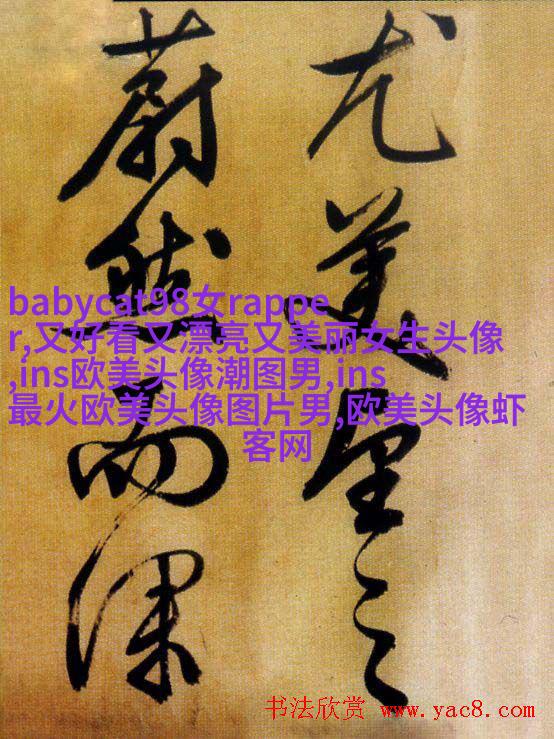 尤美望之
蔚然而深
babycat98女rappe
r,又好看又漂亮又美丽女生头像
,ins欧美头像潮图男,ins
最火欧美头像图片男,欧美头像虾
客网
书法欣赏 www.yac8.com